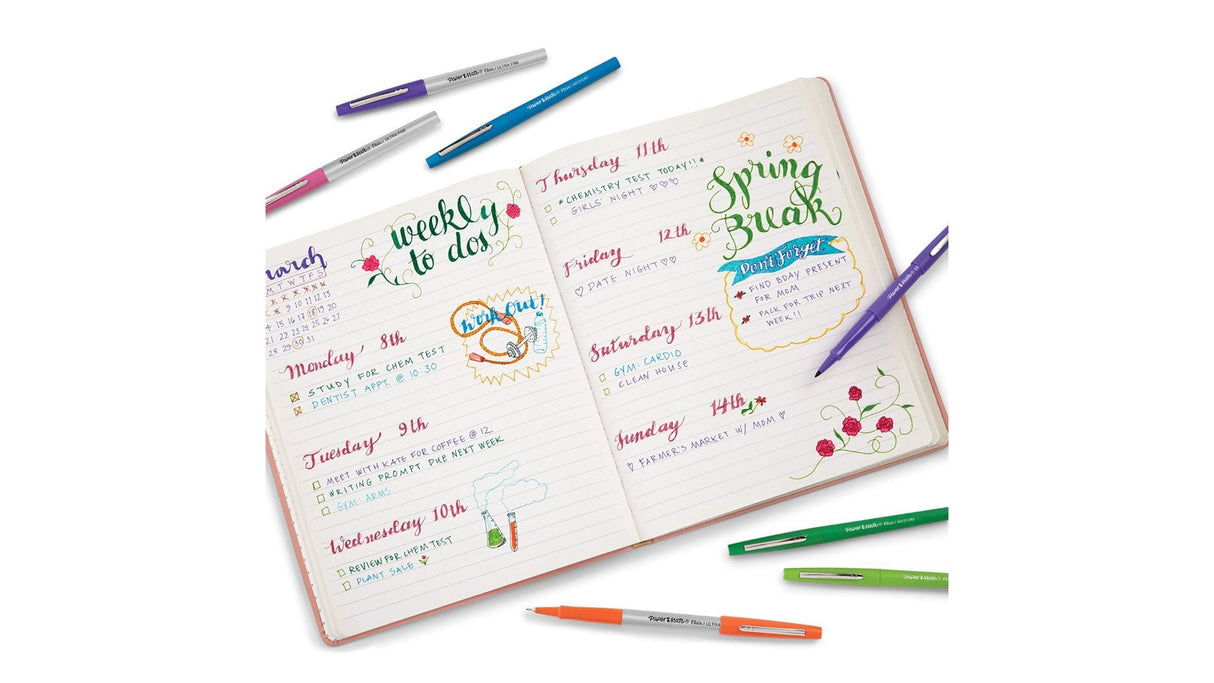 PaperMate® Flair ULTRA FINE
PaperMate® Flair MEDIUM
PaperMate® Flair ULTRA FINE
march
M T W T F S
9 10 11 12 13
15 16 17 18 19 20
21 22 23 24 25 26 27
28 29 30 31
weekly
to dos
Work Out!
Monday 8th
STUDY FOR CHEM TEST
DENTIST APPT. @ 10:30
Tuesday 9th
MEET WITH KATE FOR COFFEE @ 12
WRITING PROMPT DUE NEXT WEEK
GYM: ARMS
Wednesday 10th
REVIEW FOR CHEM TEST
PLANT SALE
Thursday 11th
*CHEMISTRY TEST TODAY!!*
GIRLS' NIGHT ♡♡♡
Friday 12th
♡ DATE NIGHT ♡♡
Saturday 13th
GYM: CARDIO
CLEAN HOUSE
Sunday 14th
♡ FARMER'S MARKET W/ MOM ♡
Spring
Break
Don't Forget
FIND BDAY PRESENT
FOR MOM
PACK FOR TRIP NEXT
WEEK!!
PaperMate® Fl
PaperMate® Flair MEDIUM
PaperMate® F
PaperMate® Flair ULTRA